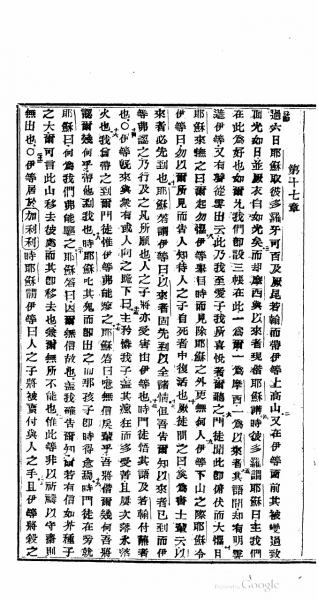 第十七章
過六日耶穌取彼多羅牙可百及厥若翰而帶伊等上高山又在伊等面前其被變過致
面光如日並厥衣白如光矣而却摩西與以來者現偕耶穌講時彼多羅謂耶穌曰主我們
在此為好也如爾允我們即設三帳在此一為爾一為摩西一為以來者其語間却有明雲
遮伊等又有聲從雲出云此乃我至愛子我所喜悅者爾聽之門徒聞此即俯伏而大懼且
耶穌來撫之曰爾起勿懼伊等舉目時而見除耶穌之外更無何人伊等下山之際耶穌令
伊等曰勿以爾所見而告人知待人之子自死者中復活也厥徒問之曰奚為書士輩云以
來者必先到也耶穌答謂伊等曰以來者固先到以全諸情但吾告爾知以來者已到而伊
等弗認之乃行及之凡所願也人之子將亦受害由伊等也時門徒悟其語及若翰付蘸者
也○伊等既來與眾有或人向之跪下曰主矜憐我子蓋其癲狂而多受苦且屢次落水落
火也我曾帶之到爾門徒惟伊等弗能療之耶穌答曰噫無信戾輩乎吾將偕爾幾何吾將
爾幾何乎帶他到我也時耶穌叱其鬼而即出之而那孩子即時得愈焉時門徒在旁就
耶穌曰何為我們弗能驅之耶穌答曰因爾無信故也蓋我確告爾知爾若有信如芥種子
之大爾可言此山移去彼處而其即移去也爾無所不能也惟此等非以祈禱以守齋則
無出也○伊等居於加利利時耶穌謂伊等曰人之子將被賣付與人之手且伊等將殺之
Google